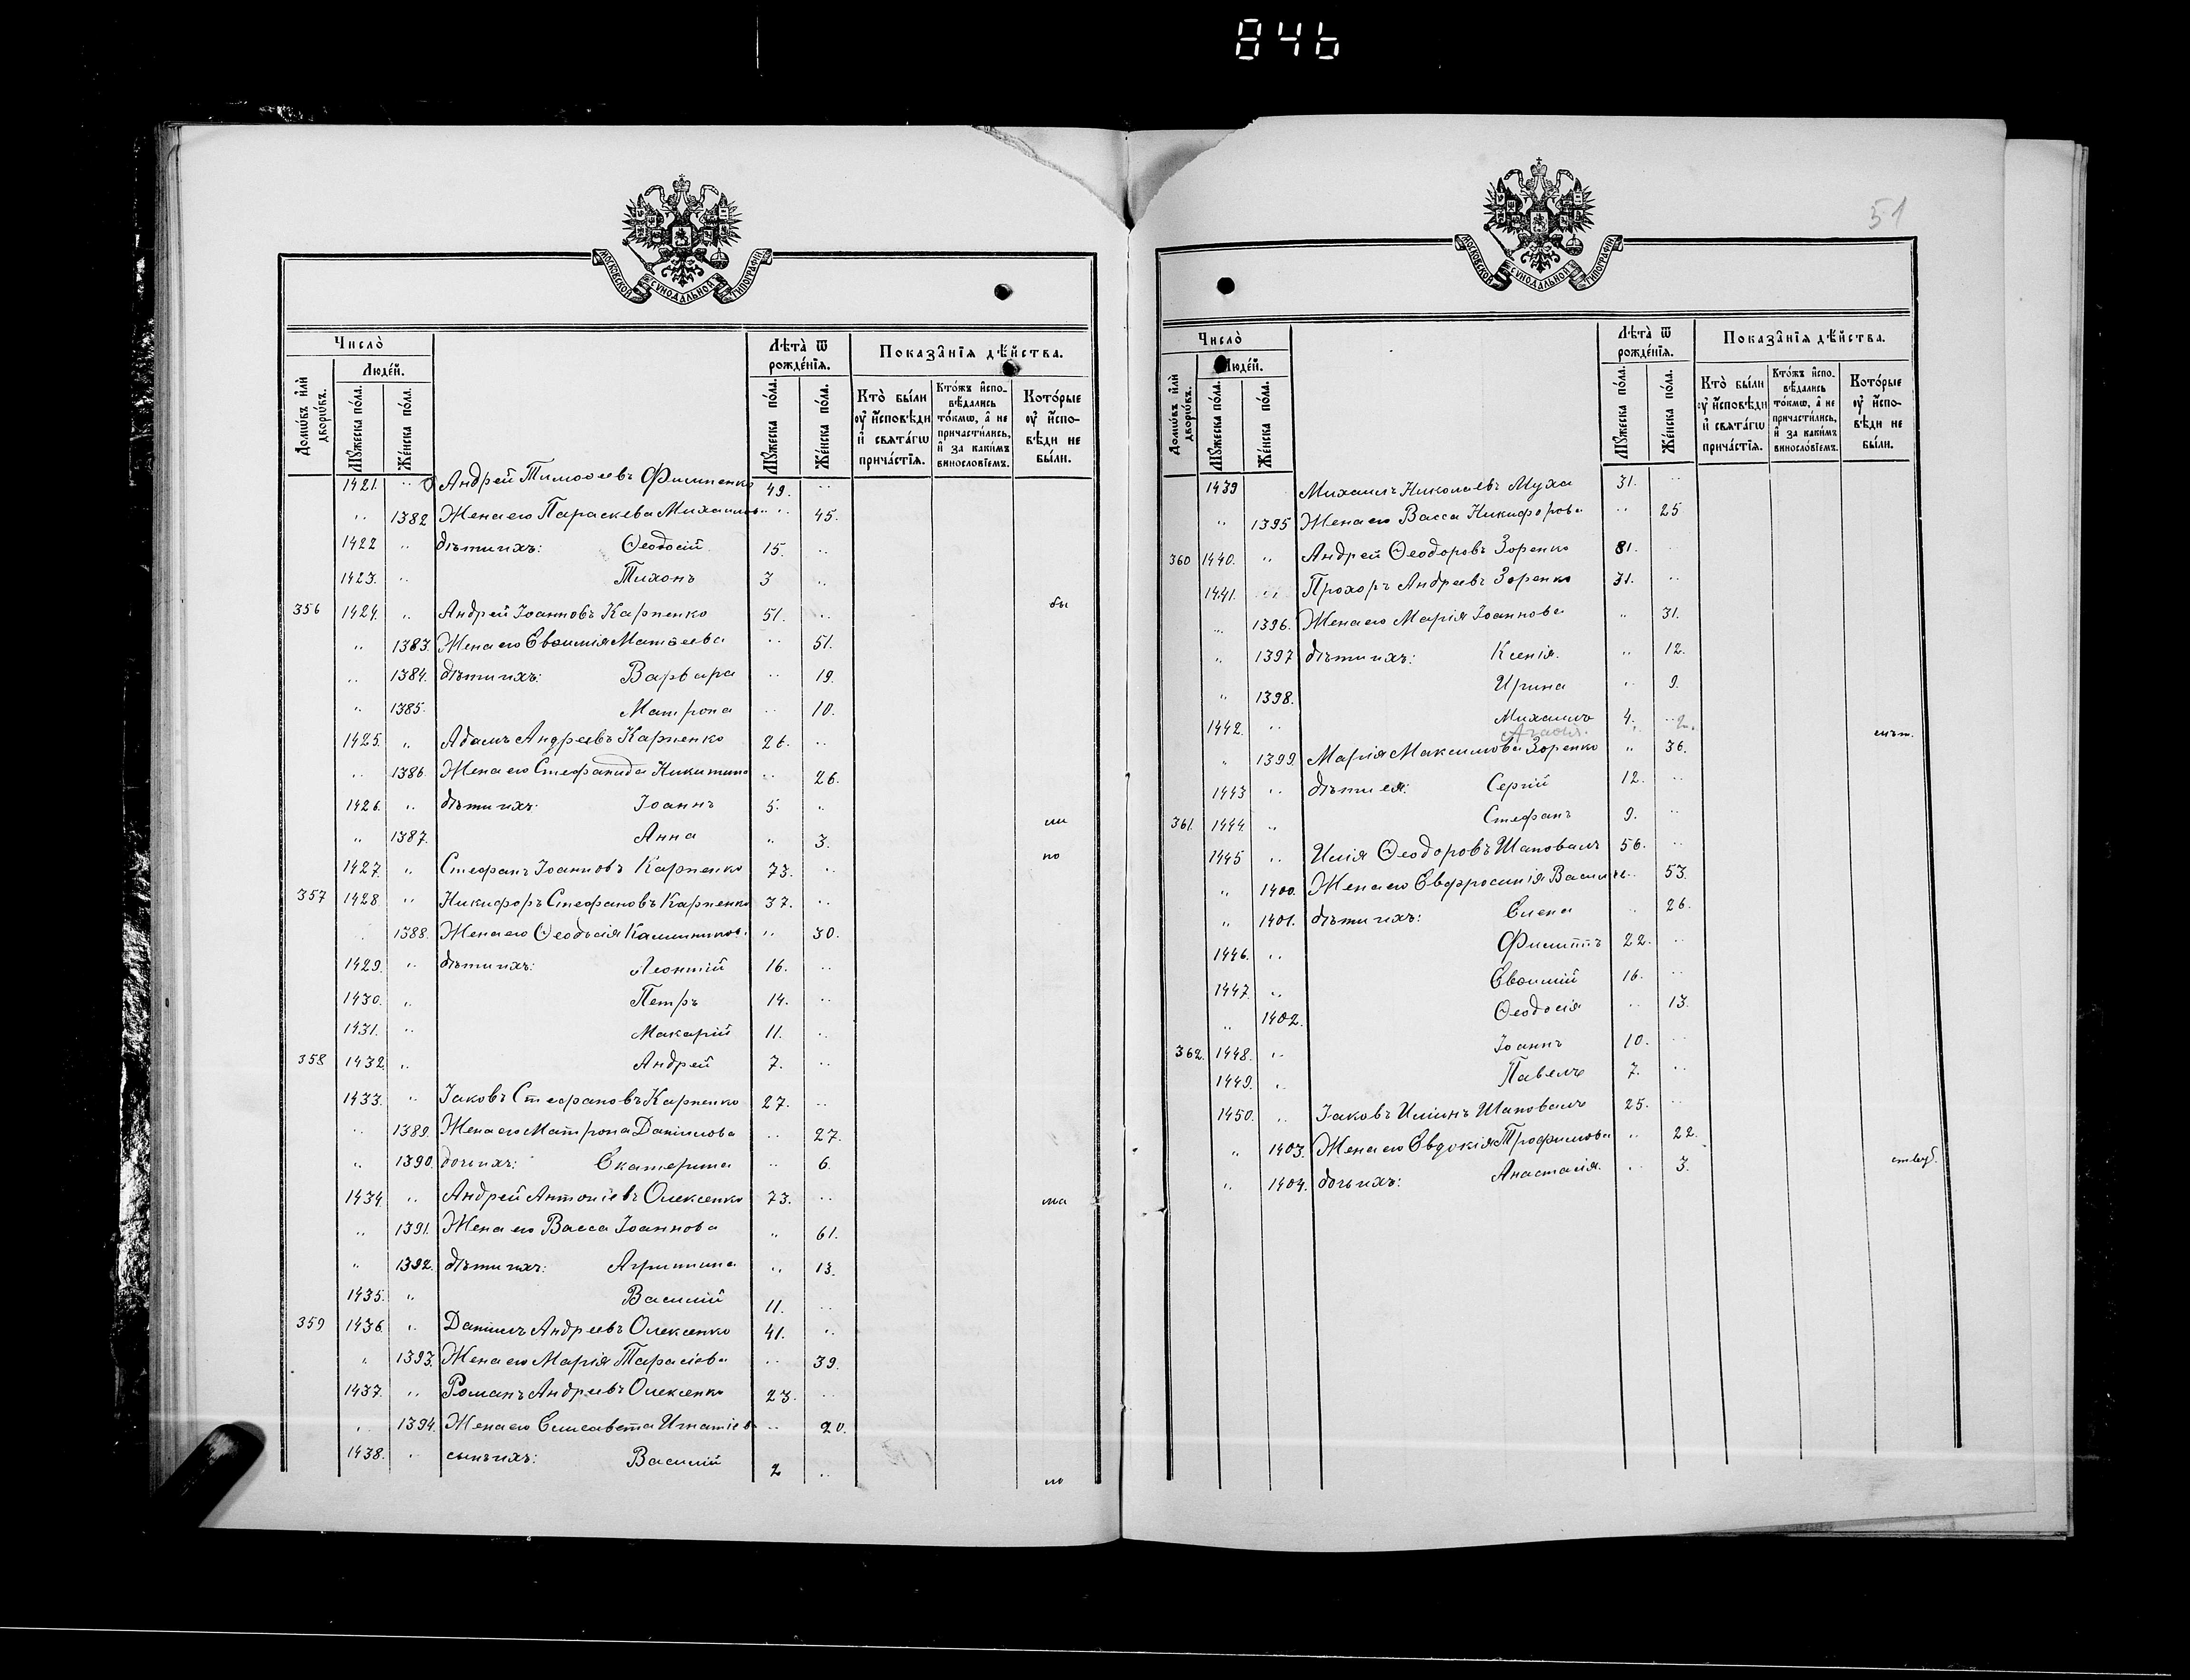 846
МОСКОВСКОЙ СѴНОДАЛЬНОЙ ТИПОГРАФІИ
Число̀
Люде́й.
Домѡ́въ и҆лѝ дворѡ́въ.
Мꙋ́жеска по́ла.
Же́нска по́ла.
Лѣта̀ ѿ рожде́нїѧ.
Мꙋ́жеска по́ла.
Же́нска по́ла.
Показа̑нїѧ дѣ́йства.
Кто̀ бы́ли ᲂу҆ и҆́сповѣди и҆ свѧта́гѡ прича́стїѧ.
Кто́жъ и҆спо- вѣ́дались то́кмѡ, а҆ не причасти́лись, и҆ за каки́мъ винословїемъ.
Кото́рые ᲂу҆ и҆спо- вѣди не бы́ли.
1421. " Андрей Тимоѳеевъ Филипенко 49. "
" 1382 Жена его Параскева Михаилов. " 45.
1422 " дѣти ихъ: Ѳеодосій 15. "
1423. " Тихонъ 3 "
356 1424. " Андрей Іоанновъ Карпенко 51. " бы
" 1383. Жена его Евѳимія Матѳеева " 51.
" 1384. дѣти ихъ: Варвара " 19.
" 1385. Матрона " 10.
1425. " Адамъ Андреевъ Карпенко 26. "
" 1386. Жена его Стефанида Никитина " 26.
1426. " дѣти ихъ: Іоаннъ 5. " ли
" 1387. Анна " 3.
1427. " Стефанъ Іоанновъ Карпенко 73. " по
357 1428 " Никифоръ Стефановъ Карпенко 37. "
1388. Жена его Ѳеодосія Каллиников. " 30.
1429. " дѣти ихъ: Леонтій 16. "
1430. " Петръ 14. "
1431. " Макарій 11. "
358 1432. " Андрей 7. "
1433. " Іаковъ Стефановъ Карпенко 27. "
" 1389. Жена его Матрона Даніилова " 27.
" 1390. дочь ихъ: Екатерина " 6.
1434. " Андрей Антоніевъ Олексенко 73. " ма
" 1391. Жена его Васса Іоаннова " 61.
" 1392. дѣти ихъ: Агриппина " 13.
1435. " Василій 11. "
359 1436. " Даніилъ Андреевъ Олексенко 41. "
" 1393. Жена его Марія Тарасіева " 39.
1437. " Романъ Андреевъ Олексенко 23. "
" 1394. Жена его Елисавета Игнатіев " 20.
1438. " сынъ ихъ: Василій 2 " ло
51
МОСКОВСКОЙ СѴНОДАЛЬНОЙ ТИПОГРАФІИ
Число̀
Люде́й.
Домѡ́въ и҆лѝ дворѡ́въ.
Мꙋ́жеска по́ла.
Же́нска по́ла.
Лѣта̀ ѿ рожде́нїѧ.
Мꙋ́жеска по́ла.
Же́нска по́ла.
Показа̑нїѧ дѣ́йства.
Кто̀ бы́ли ᲂу҆ и҆́сповѣди и҆ свѧта́гѡ прича́стїѧ.
Кто́жъ и҆спо- вѣ́дались то́кмѡ, а҆ не причасти́лись, и҆ за каки́мъ винословїемъ.
Кото́рые ᲂу҆ и҆спо- вѣди не бы́ли.
1439 Михаилъ Николаевъ Муха 31. "
" 1395 Жена его Васса Никифорова " 25
360 1440. " Андрей Ѳеодоровъ Зоренко 81.
1441. " Прохоръ Андреевъ Зоренко 31. "
" 1396. Жена его Марія Іоаннова " 31.
" 1397 дѣти ихъ: Ксенія. " 12.
" 1398. Ирина " 9.
1442. " Михаилъ 4. "
Агаѳія. " 2.
" 1399. Марія Максимова Зоренко " 36.
1443 " дѣти ея: Сергій 12. "
361. 1444. " Стефанъ 9. "
1445 " Илія Ѳеодоровъ Шаповалъ 56. "
" 1400. Жена его Евфросинія Василіе " 53.
" 1401. дѣти ихъ: Елена " 26.
1446. " Филиппъ 22. "
1447. " Евѳимій 16. "
" 1402. Ѳеодосія " 13.
362. 1448. " Іоаннъ 10. "
1449. " Павелъ 7. "
1450. " Іаковъ Иліинъ Шаповалъ 25. "
" 1403. Жена его Евдокія Трофимова " 22.
" 1404. дочь ихъ: Анастасія. " 3.